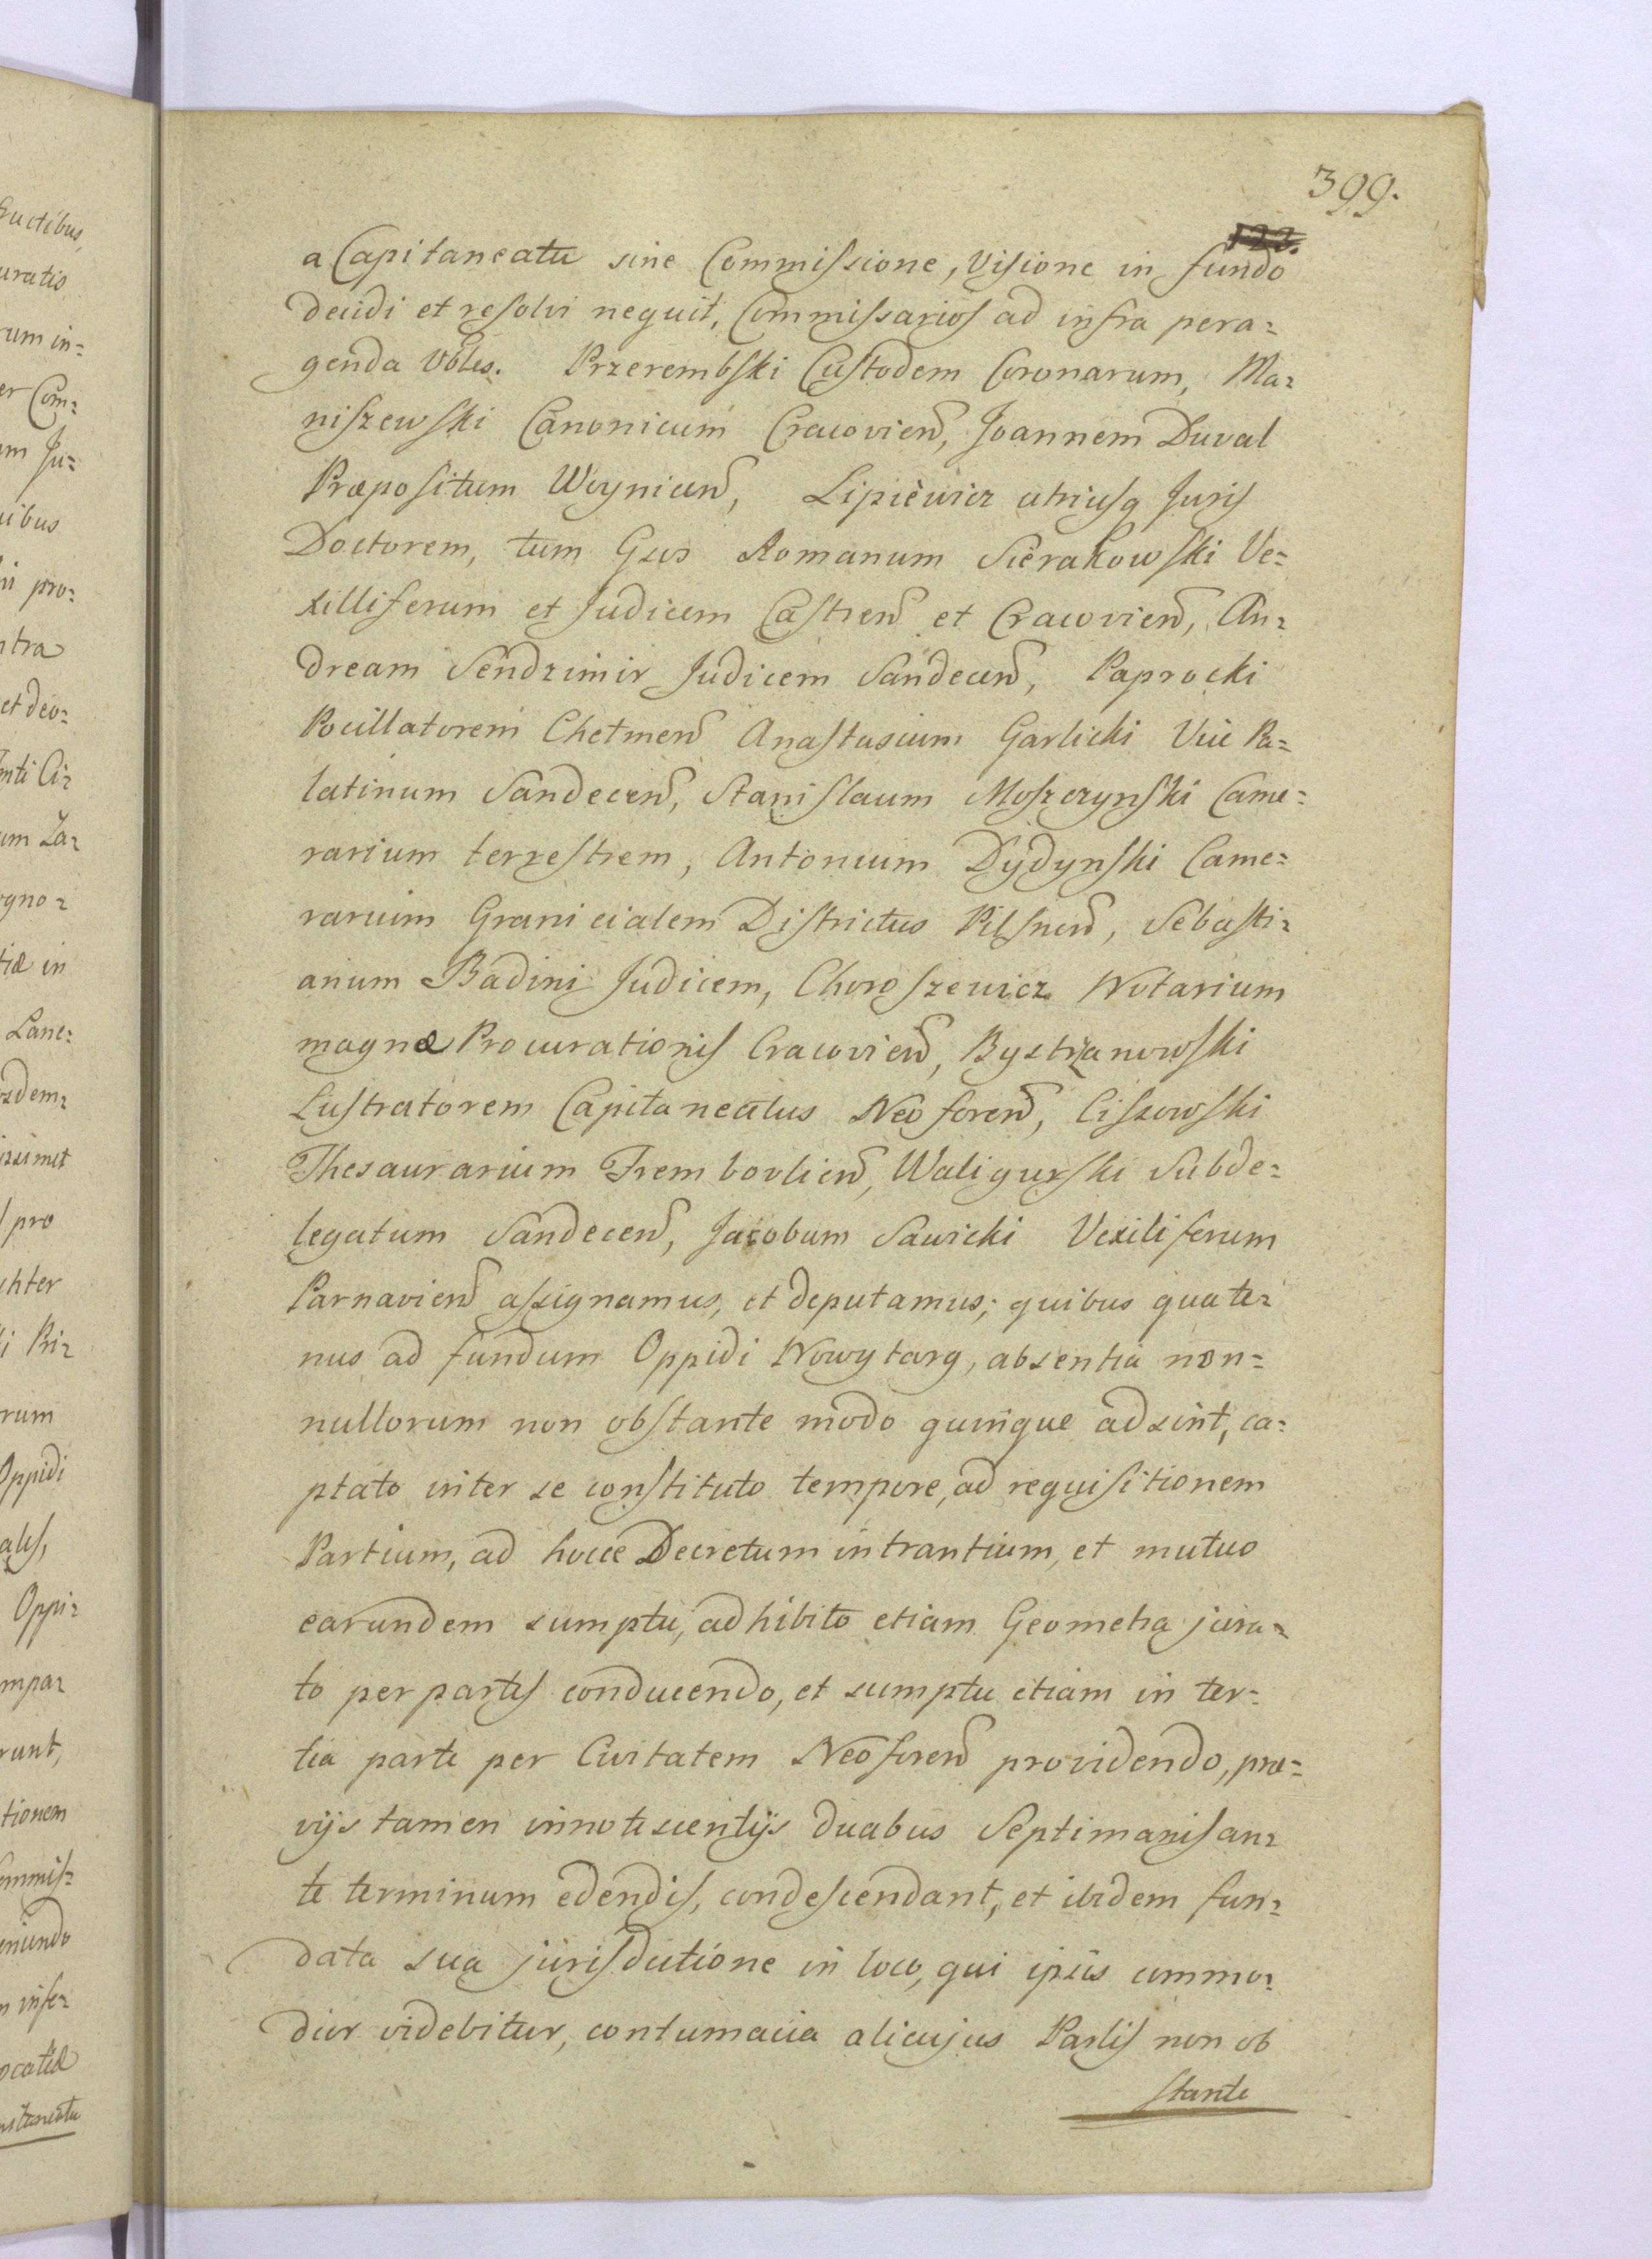 399.
122.
a Capitaneatu sine Commissione, Visione in fundo
decidi et resolvi nequit, Commissarios ad infra pera=
genda Vbles. Przerembski Custodem Coronarum, Ma=
niszewski Canonicum Cracovien, Joannem Duval
Præpositum Woynicen, Lipiewicz utriusq Juris
Doctorem, tum Gsos Romanum Sierakowski Ve=
xilliferum et Judicem Castren et Cracovien, An=
dream Sendzimir Judicem Sandecen, Paprocki
Pocillatorem Chelmen Anastasium Garlicki Vice Pa=
latinum Sandecen, Stanislaum Moszczynski Came=
rarium terrestrem, Antonium Dydynski Came=
rarium Granicialem Districtus Pilsnen, Sebasti=
anum Badini Judicem, Choroszewicz Notarium
magnæ Procurationis Cracovien, Bystrzanowski
Lustratorem Capitaneatus Neoforen, Ciszowski
Thesaurarium Trembovlien, Waligurski Subde=
legatum Sandecen, Jacobum Sawicki Vexiliferum
Parnavien assignamus, et deputamus; quibus quate=
nus ad fundum Oppidi Nowytarg, absentia non=
nullorum non obstante modo quinque adsint, ca=
ptato inter se constituto tempore, ad requisitionem
Partium, ad hocce Decretum intrantium, et mutuo
earundem sumptu, adhibito etiam Geometra jura=
to per partes conducendo, et sumptu etiam in ter=
tia parte per Civitatem Neoforen providendo, præ=
vijs tamen innotescentijs duabus Septimanis an=
te terminum edendis, condescendant, et ibidem fun=
data sua jurisdictione in loco, qui ipsis commo=
dior videbitur, contumacia alicujus Partis non ob
stante